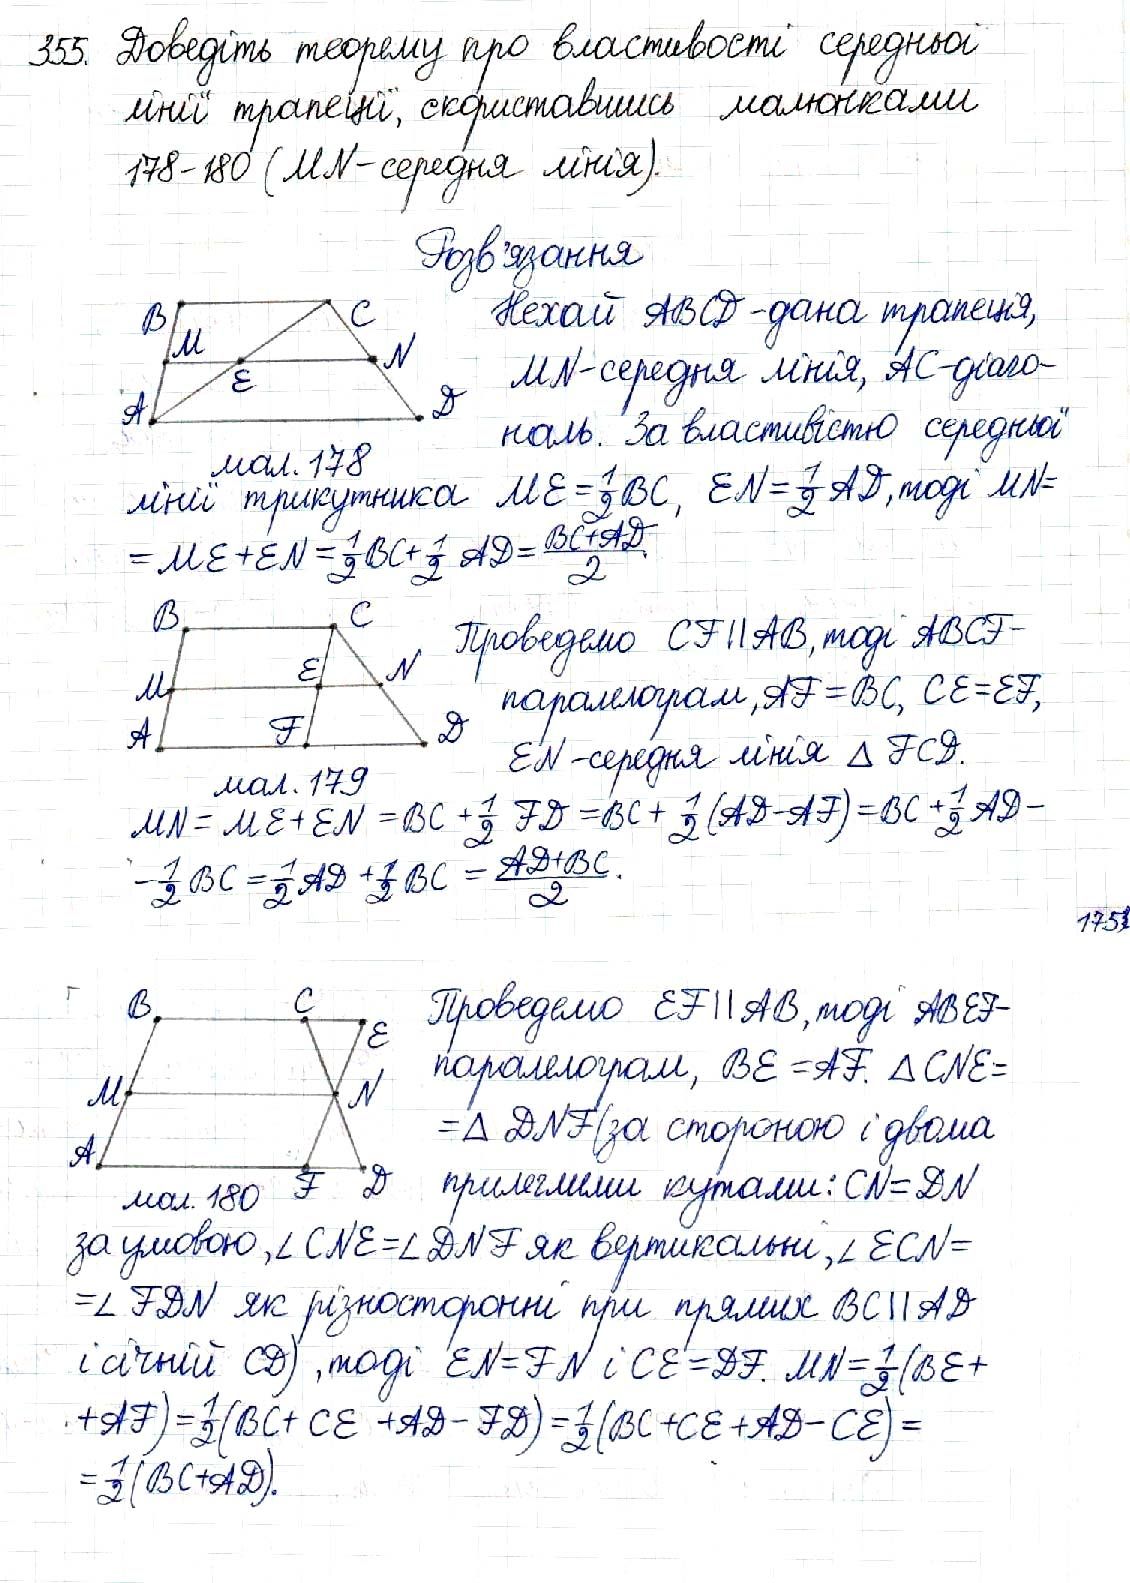 355. Доведіть теорему про властивості середньої
лінії трапеції, скориставшись малюнками
178-180 (MN-середня лінія).
Розв'язання
B C M N E A D
мал. 178
Нехай ABCD-дана трапеція,
MN-середня лінія, AC-діаго-
наль. За властивістю середньої
лінії трикутника ME=1/2BC, EN=1/2AD, тоді MN=
=ME+EN=1/2BC+1/2AD=(BC+AD)/2.
B C M E N A F D
мал. 179
Проведемо CF||AB, тоді ABCF-
паралелограм, AF=BC, CE=EF,
EN-середня лінія △FCD.
MN=ME+EN=BC+1/2FD=BC+1/2(AD-AF)=BC+1/2AD-
-1/2BC=1/2AD+1/2BC=(AD+BC)/2.
B C E M N A F D
мал. 180
Проведемо EF||AB, тоді ABEF-
паралелограм, BE=AF. △CNE=
=△DNF(за стороною і двома
прилеглими кутами: CN=DN
за умовою, ∠CNE=∠DNF як вертикальні, ∠ECN=
=∠FDN як різносторонні при прямих BC||AD
і січній CD), тоді EN=FN і CE=DF. MN=1/2(BE+
+AF)=1/2(BC+CE+AD-FD)=1/2(BC+CE+AD-CE)=
=1/2(BC+AD).